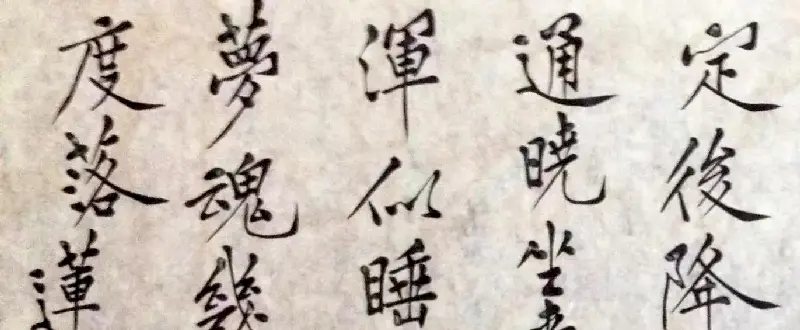 定後降
通曉坐
渾似睡
夢魂幾
度落蓮